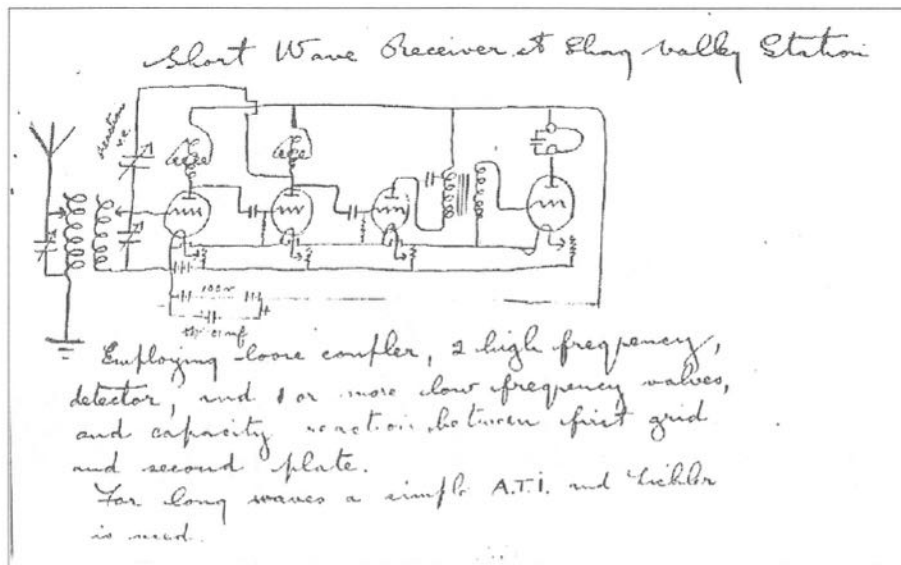 Short Wave Receiver at Shag Valley Station
reaction
v.c.
100v
Employing loose coupler, 2 high frequency,
detector, and 1 or more low frequency valves,
and capacity reaction between first grid
and second plate.
For long waves a simple A.T.I. and tickler
is used.